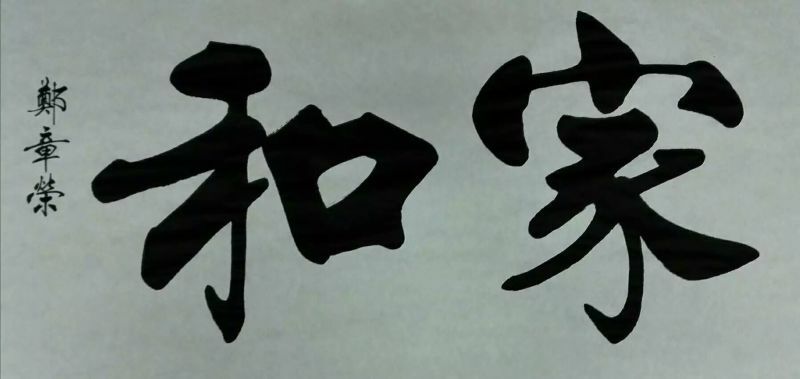 家和
鄭章榮